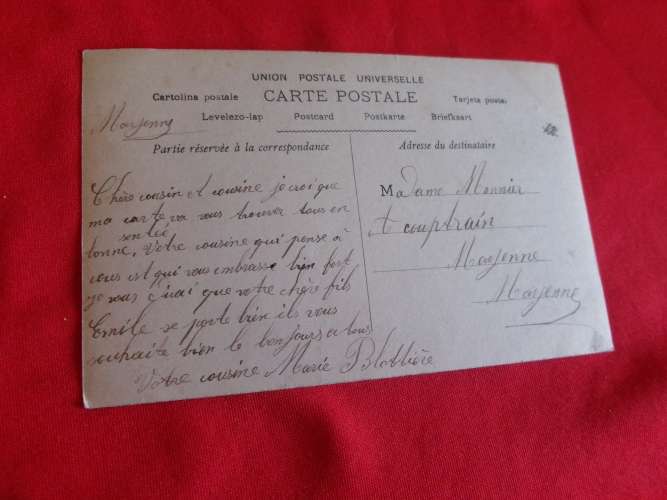 UNION POSTALE UNIVERSELLE
Cartolina postale CARTE POSTALE Tarjeta posta.
Levelezo-lap Postcard Postkarte Briefkaart
Mayenne
Partie réservée à la correspondance
Chère cousin et cousine je croi que
ma carte va vous trouver tous en
bonne, sentée Votre cousine qui pense à
vous et qui vous embrasse bien fort
je vous que votre chère fils
Emile se porte bien ils vous
souhaite bien le bonjours a tous
Votre cousine Marie
Adresse du destinataire
Madame Monnier
A couptrain
Mayenne
Mayenne